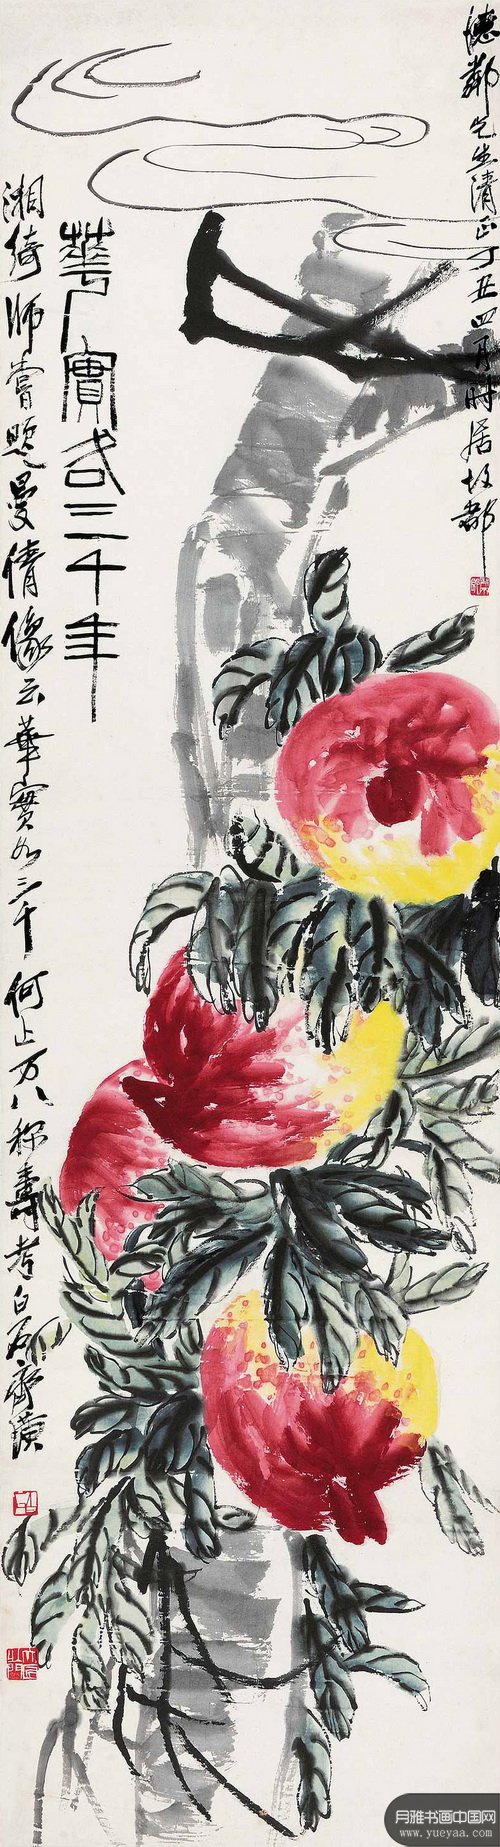 德鄰先生清正丁丑四月時居故都
華實各三千年
湘綺師嘗題曼倩像云華實各三千何止万八称壽考白石齊璜
月雅书画中国网
www.yueyaa.com